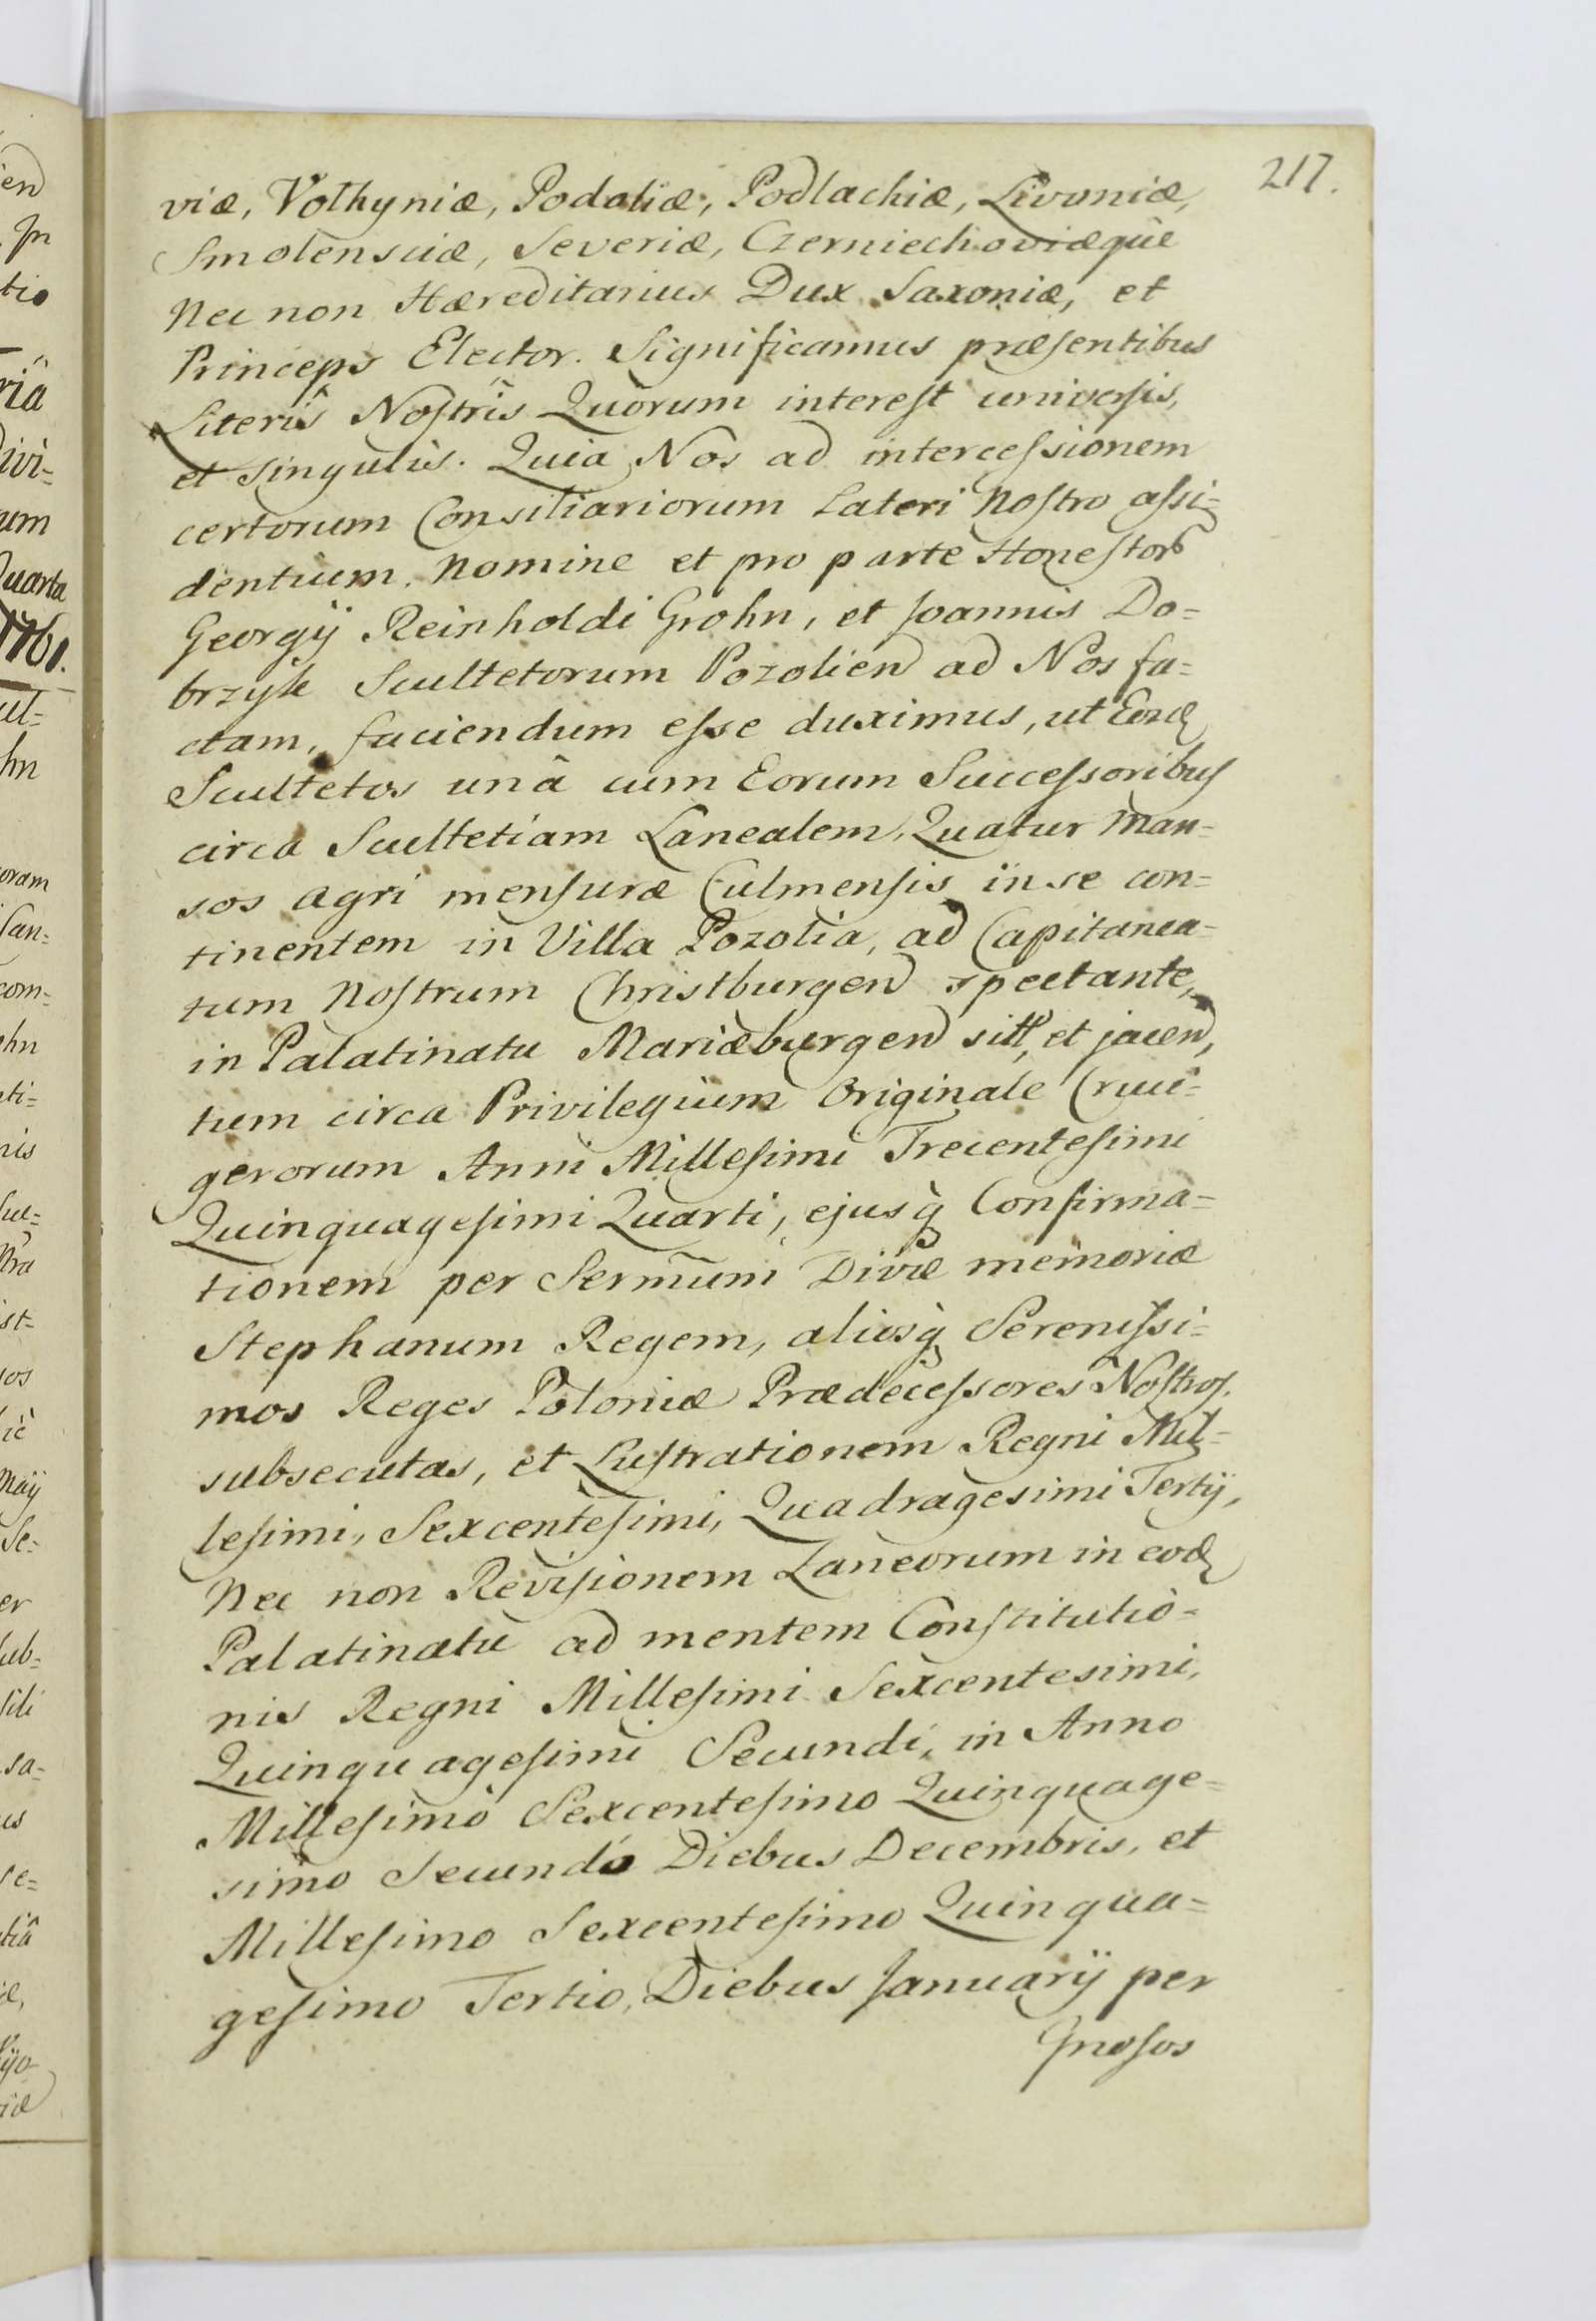 217.
viæ, Volhyniæ, Podoliæ, Podlachiæ, Livoniæ,
Smolensciæ, Severiæ, Czerniechoviæque
Nec non Hæreditarius Dux Saxoniæ, et
Princeps Elector. Significamus præsentibus
Literis Nostris Quorum interest universis,
et singulis. Quia Nos ad intercessionem
certorum Consiliariorum Lateri Nostro assi=
dentium, nomine et pro parte Honestor
Georgÿ Reinholdi Grohn, et Joannis Do=
brzyk Scultetorum Pozolien ad Nos fa=
ctam, faciendum esse duximus, ut Eosd
Scultetos unâ cum Eorum Successoribus
circa Scultetiam Lanealem, Quatur Man=
sos agri mensuræ Culmensis in se con=
tinentem in Villa Pozolia, ad Capitanea=
tum Nostrum Christburgen spectante,
in Palatinatu Mariæburgen sitt, et jacen,
tum circa Privilegium Originale Cruci=
gerorum Anni Millesimi Trecentesimi
Quinquagesimi Quarti, ejusq Confirma=
tionem per Sermum Divæ memoriæ
Stephanum Regem, aliosq Serenissi=
mos Reges Poloniæ Prædecessores Nostros.
subsecutas, et Lustrationem Regni Mil=
lesimi, Sexcentesimi, Quadragesimi Tertÿ,
Nec non Revisionem Laneorum in eod
Palatinatu ad mentem Constitutio=
nis Regni Millesimi Sexcentesimi,
Quinquagesimi Secundi, in Anno
Millesimo Sexcentesimo Quinquage=
simo Secundo Diebus Decembris, et
Millesimo Sexcentesimo Quinqua=
gesimo Tertio, Diebus Januarÿ per
Gnosos